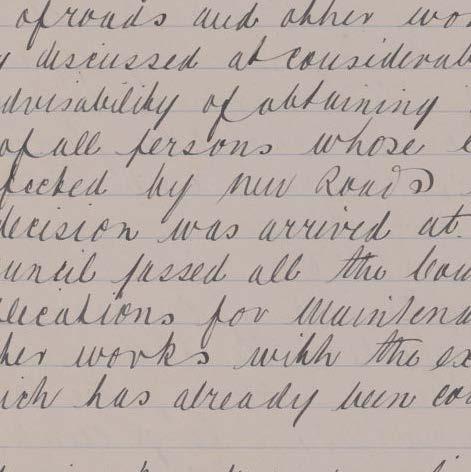 of roads and other wor
y discussed at considerab
dvisability of obtaining
of all persons whose
fected by new Roads
decision was arrived at
uncil passed all the
lications for Maintena
her works with the ex
ich has already been con